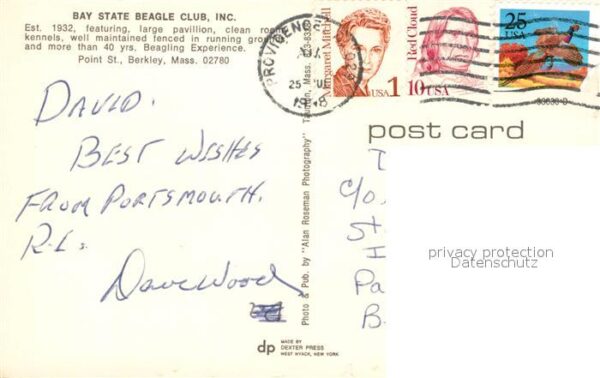 BAY STATE BEAGLE CLUB, INC.
Est. 1932, featuring, large pavillion, clean
kennels, well maintained fenced in running
and more than 40 yrs. Beagling Experience.
Point St., Berkley, Mass. 02780
PROVIDENCE
25
Margaret Mitchell
USA 1
Red Cloud
10 USA
25
USA
post card
DAVID.
BEST WISHES
FROM PORTSMOUTH.
R.I.
Dave Wood
Photo & Pub. by "Alan Roseman Photography"
Mass.
C/O
St
Pa
B
privacy protection
Datenschutz
dp
MADE BY
DEXTER PRESS
WEST NYACK, NEW YORK